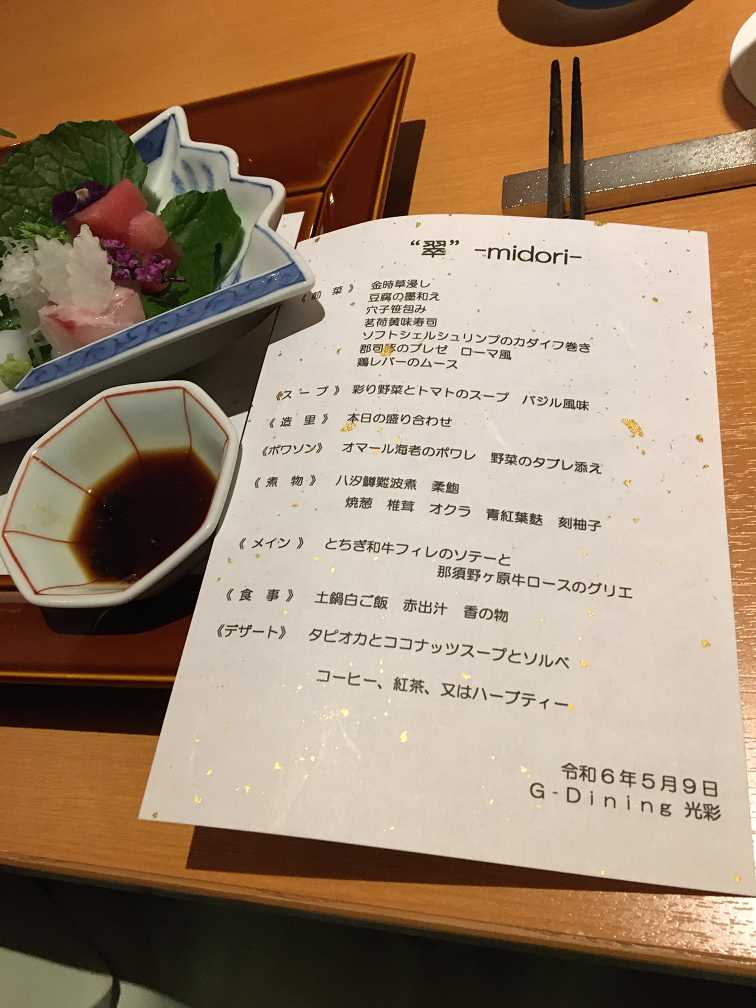 “翠” -midori-
《前 菜》 金時草浸し
豆腐の墨和え
穴子笹包み
茗荷黄味寿司
ソフトシェルシュリンプのカダイフ巻き
郡司豚のブレゼ ローマ風
鶏レバーのムース
《スープ》 彩り野菜とトマトのスープ バジル風味
《造 里》 本日の盛り合わせ
《ポワソン》 オマール海老のポワレ 野菜のタブレ添え
《煮 物》 八汐鱒難波煮 柔鮑
焼葱 椎茸 オクラ 青紅葉麩 刻柚子
《メイン》 とちぎ和牛フィレのソテーと
那須野ヶ原牛ロースのグリエ
《食 事》 土鍋白ご飯 赤出汁 香の物
《デザート》 タピオカとココナッツスープとソルベ
コーヒー、紅茶、又はハーブティー
令和6年5月9日
G-Dining 光彩